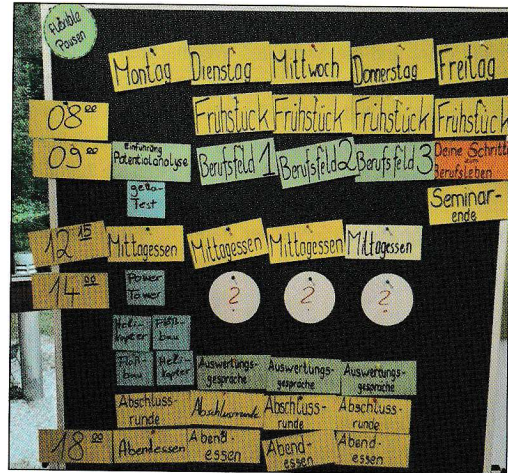 Flexible
Pausen
Montag Dienstag Mittwoch Donnerstag Freitag
08 00 Frühstück Frühstück Frühstück Frühstück
09 00 Einführung Potentialanalyse Berufsfeld 1 Berufsfeld 2 Berufsfeld 3 Deine Schritte
Berufsleben
geva-
Test
Seminar-
ende
12 15 Mittagessen Mittagessen Mittagessen Mittagessen
14 00 Power
Tower
? ? ?
Heli-
kopter
Floß-
bau
Floß-
bau
Heli-
kopter
Auswertungs-
gespräche
Auswertungs-
gespräche
Auswertungs-
gespräche
Abschluss-
runde
Abschlussrunde
Abschluss-
runde
Abschluss-
runde
18 00 Abendessen
Abend-
essen
Abend-
essen
Abend-
essen